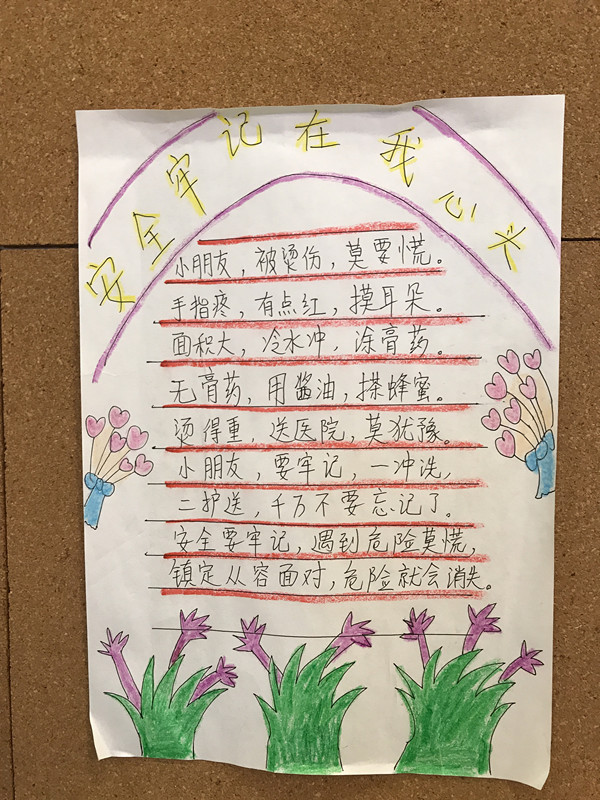 安全牢记在我心头
小朋友，被烫伤，莫要慌。
手指疼，有点红，摸耳朵。
面积大，冷水冲，涂膏药。
无膏药，用酱油，搽蜂蜜。
烫得重，送医院，莫犹豫。
小朋友，要牢记，一冲洗，
二护送，千万不要忘记了。
安全要牢记，遇到危险莫慌，
镇定从容面对，危险就会消失。